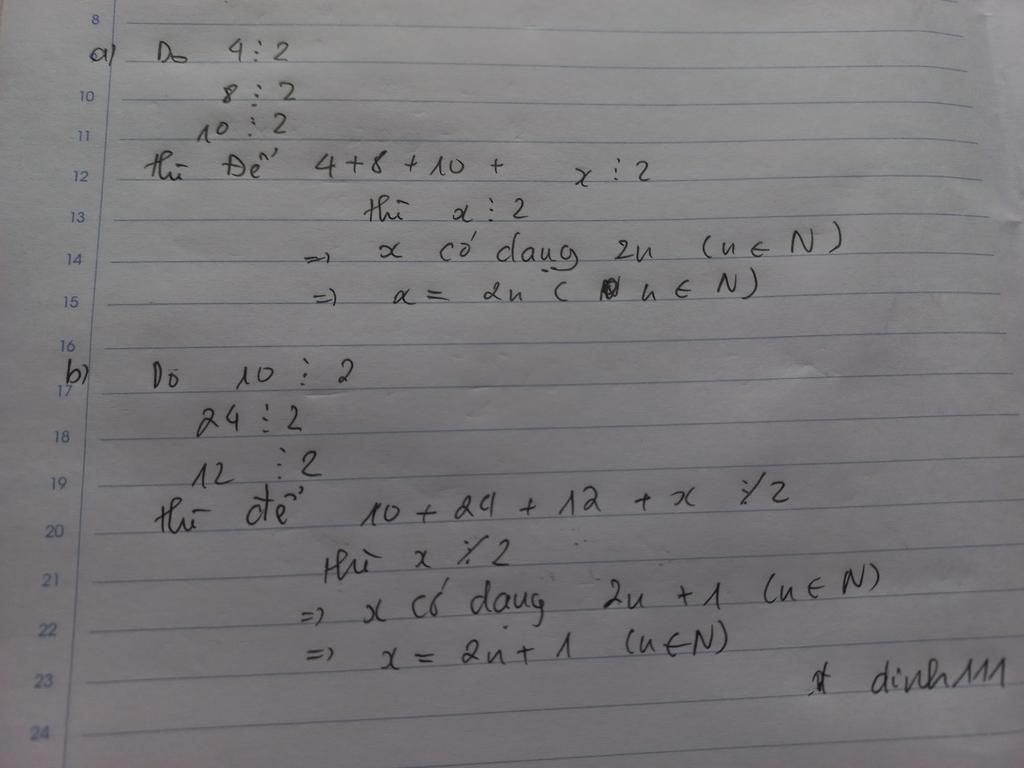 8
a) Do 4 ⋮ 2
10 8 ⋮ 2
11 10 ⋮ 2
12 thì Để 4 + 8 + 10 + x ⋮ 2
13 thì x ⋮ 2
14 => x có dạng 2n (n ∈ N)
15 => x = 2n ( n ∈ N)
16
b) Do 10 ⋮ 2
17
18 24 ⋮ 2
19 12 ⋮ 2
20 thì để 10 + 24 + 12 + x ⋮̸ 2
21 thì x ⋮̸ 2
22 => x có dạng 2n + 1 (n ∈ N)
23 => x = 2n + 1 (n ∈ N)
dinh111
24